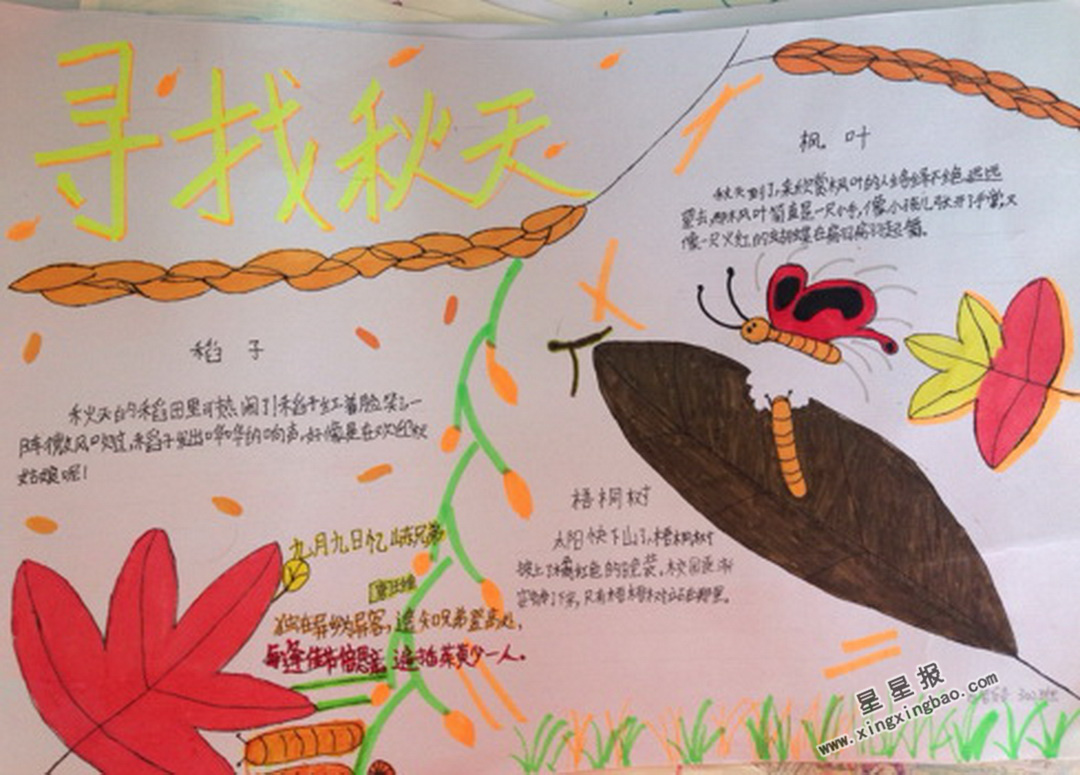 寻找秋天
枫叶
秋天到了,来欣赏枫叶的人络绎不绝,远远
望去,那枫叶简直是一只小手,像小孩儿张开了手掌,又
像一只火红的蝴蝶在翩翩起舞。
稻子
秋天的稻田里可热闹了!稻子红着脸笑了一
阵微风吹过,稻子发出哗哗的响声,好像是在欢迎秋
姑娘呢!
梧桐树
太阳快下山了,梧桐树
披上了橘红色的晚装。校园逐渐
安静了下来,只有梧桐树站在那里。
九月九日忆山东兄弟
唐 王维
独在异乡为异客,
遥知兄弟登高处,
每逢佳节倍思亲。
遍插茱萸少一人。
星星报
www.xingxingbao.com